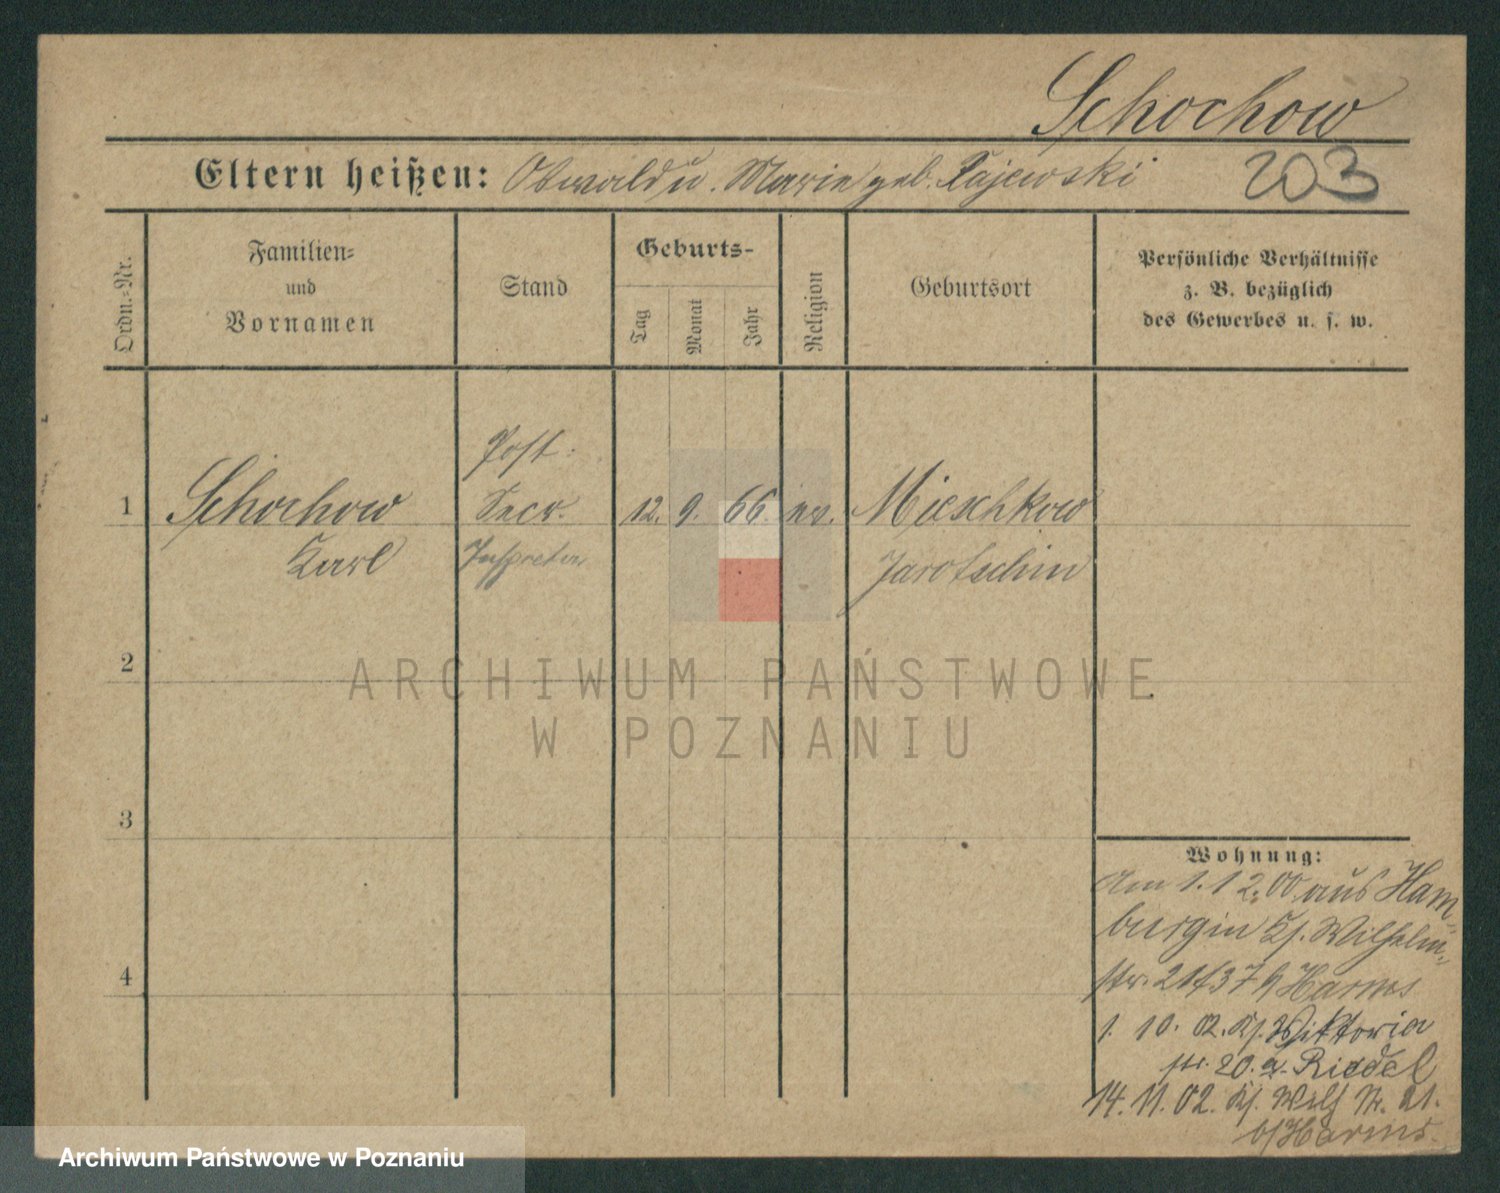 Schochow
Eltern heißen: Oswald u. Marie geb. Rajewski 203
Ordn.-Nr.
Familien-
und
Vornamen
Stand
Geburts-
Tag
Monat
Jahr
Religion
Geburtsort
Persönliche Verhältnisse
z. B. bezüglich
des Gewerbes u. s. w.
Post
1 Schochow Secr. 12. 9. 66. ev. Mieschkow
Karl Jarotschin
2
ARCHIWUM PAŃSTWOWE
W POZNANIU
3
4
Wohnung:
Am 1.12.00 aus Ham-
burg in Kf. Wilhelm-
str. 21 Harms
1. 10. 02. Kf. Viktoria
str. 20. Riedel
14. 11. 02. Kf. Wilh Nr. 21.
b/Harms.
Archiwum Państwowe w Poznaniu